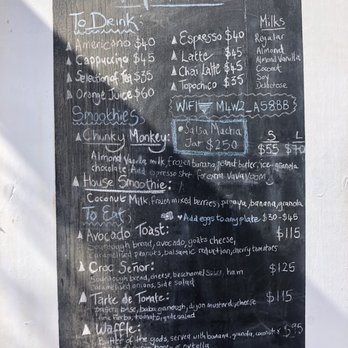 To Drink:
Americano $40
Cappuccino $45
Selection of Tea $35
Orange Juice $60
Espresso $40
Latte $45
Chai Latte $45
Topochico $35
Milks
Regular
Almond
Almond Vanilla
Coconut
Soy
Delactose
WiFi M4W2_A58BB
Smoothies
Salsa Macha
Jar $250
S L
Chunky Monkey: $55 $70
Almond Vanilla milk, frozen banana, peanut butter, ice, granola
chocolate Add espresso shot for extra
House Smoothie:
Coconut Milk, frozen mixed berries, papaya, banana, granola
To Eat:
Add eggs to any plate $30-$45
Avocado Toast: $115
Sourdough bread, avocado, goats cheese,
caramelised peanuts, balsamic reduction, cherry tomatoes
Croc Señor: $125
Sourdough bread, cheese, bechamel sauce, ham
caramelised onions, side salad
Tarte de Tomate: $115
pastry base, baba ganoush, dijon mustard, cheese
tomato, side salad
Waffle: $95
Butter of the gods, served with banana, granola, coconut
or nutella